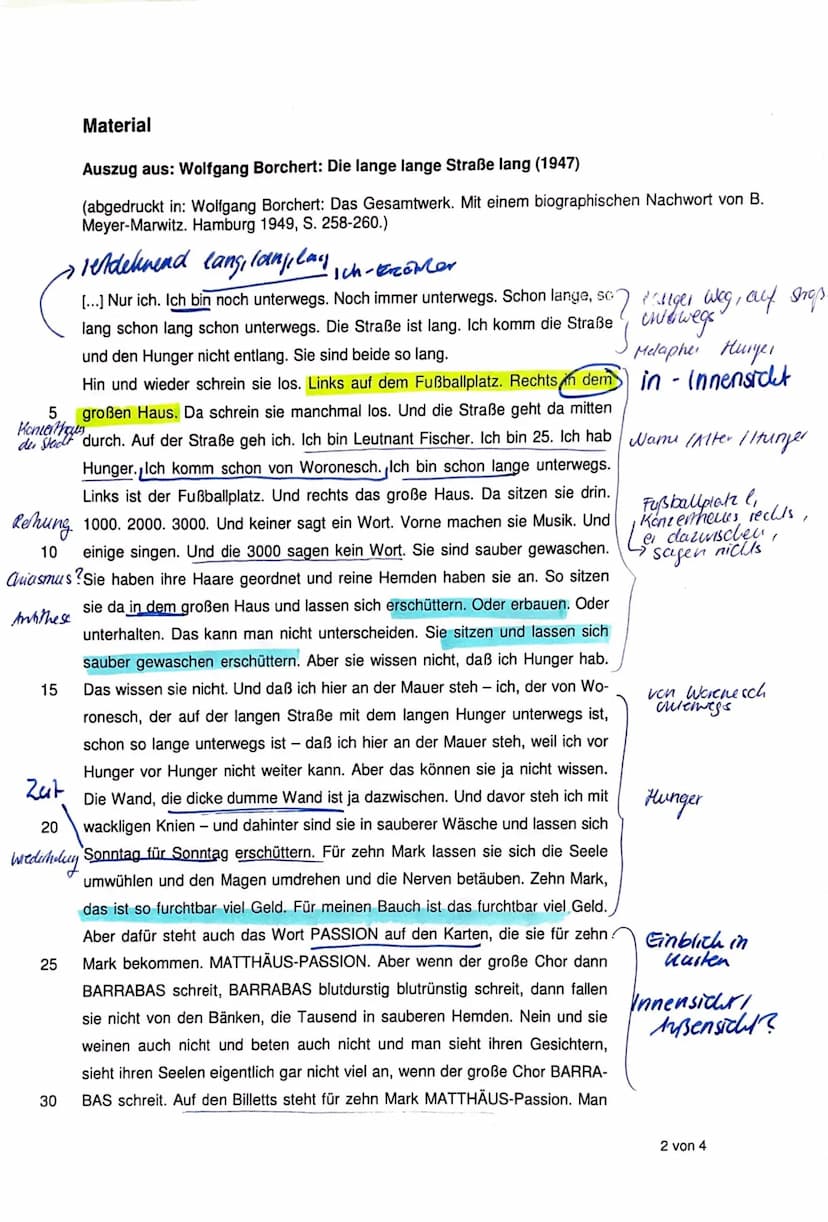 Material
Auszug aus: Wolfgang Borchert: Die lange lange Straße lang (1947)
(abgedruckt in: Wolfgang Borchert: Das Gesamtwerk. Mit einem biographischen Nachwort von B.
Meyer-Marwitz. Hamburg 1949, S. 258-260.)
lang, lang, lang
Ich-Erzähler
[...] Nur ich. Ich bin noch unterwegs. Noch immer unterwegs. Schon lange, so
lang schon lang schon unterwegs. Die Straße ist lang. Ich komm die Straße
und den Hunger nicht entlang. Sie sind beide so lang.
Weg, auf
unterwegs
Metapher Hunger
Hin und wieder schrein sie los. Links auf dem Fußballplatz. Rechts in dem
in - Innensicht
5 großen Haus. Da schrein sie manchmal los. Und die Straße geht da mitten
Konzerthaus
der Stadt
durch. Auf der Straße geh ich. Ich bin Leutnant Fischer. Ich bin 25. Ich hab
Name / Alter / Hunger
Hunger. Ich komm schon von Woronesch. Ich bin schon lange unterwegs.
Links ist der Fußballplatz. Und rechts das große Haus. Da sitzen sie drin.
Fußballplatz l,
Konzerthaus rechts,
er dazwischen,
sagen nichts
Reihung
1000. 2000. 3000. Und keiner sagt ein Wort. Vorne machen sie Musik. Und
10 einige singen. Und die 3000 sagen kein Wort. Sie sind sauber gewaschen.
Chiasmus?
Sie haben ihre Haare geordnet und reine Hemden haben sie an. So sitzen
Antithese
sie da in dem großen Haus und lassen sich erschüttern. Oder erbauen. Oder
unterhalten. Das kann man nicht unterscheiden. Sie sitzen und lassen sich
sauber gewaschen erschüttern. Aber sie wissen nicht, daß ich Hunger hab.
15 Das wissen sie nicht. Und daß ich hier an der Mauer steh – ich, der von Wo-
von Woronesch
unterwegs
ronesch, der auf der langen Straße mit dem langen Hunger unterwegs ist,
schon so lange unterwegs ist – daß ich hier an der Mauer steh, weil ich vor
Hunger vor Hunger nicht weiter kann. Aber das können sie ja nicht wissen.
Zeit
Die Wand, die dicke dumme Wand ist ja dazwischen. Und davor steh ich mit
Hunger
20 wackligen Knien – und dahinter sind sie in sauberer Wäsche und lassen sich
Wiederholung
Sonntag für Sonntag erschüttern. Für zehn Mark lassen sie sich die Seele
umwühlen und den Magen umdrehen und die Nerven betäuben. Zehn Mark,
das ist so furchtbar viel Geld. Für meinen Bauch ist das furchtbar viel Geld.
Aber dafür steht auch das Wort PASSION auf den Karten, die sie für zehn
Einblick in
Karten
25 Mark bekommen. MATTHÄUS-PASSION. Aber wenn der große Chor dann
BARRABAS schreit, BARRABAS blutdurstig blutrünstig schreit, dann fallen
Innensicht/
Außensicht?
sie nicht von den Bänken, die Tausend in sauberen Hemden. Nein und sie
weinen auch nicht und beten auch nicht und man sieht ihren Gesichtern,
sieht ihren Seelen eigentlich gar nicht viel an, wenn der große Chor BARRA-
30 BAS schreit. Auf den Billetts steht für zehn Mark MATTHÄUS-Passion. Man
2 von 4